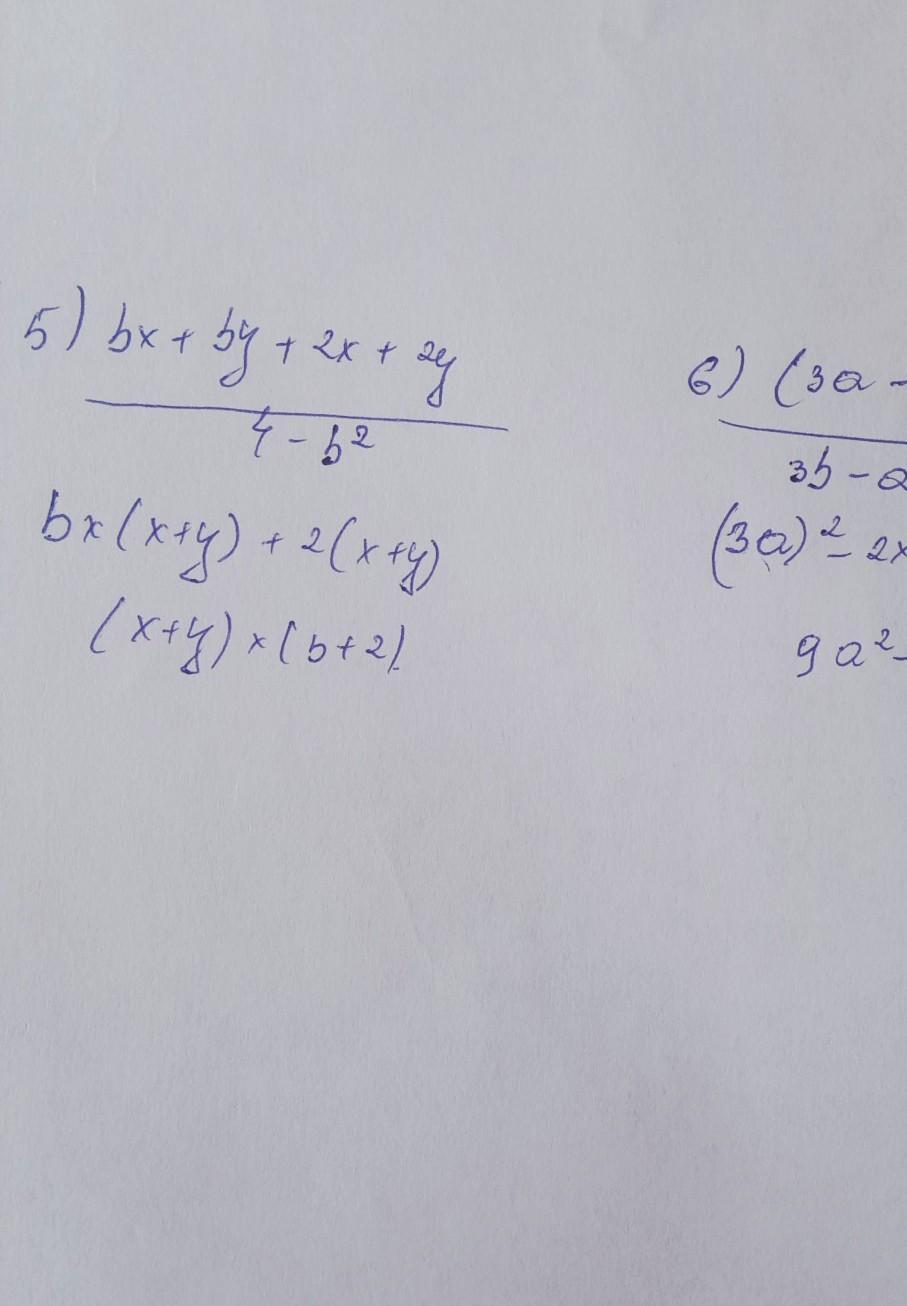 5) bx + by + 2x + 2y
4 - b²
bx(x+y) + 2(x+y)
(x+y) × (b+2)
6) (3a -
3b - a
(3a)² - 2x
9a² -